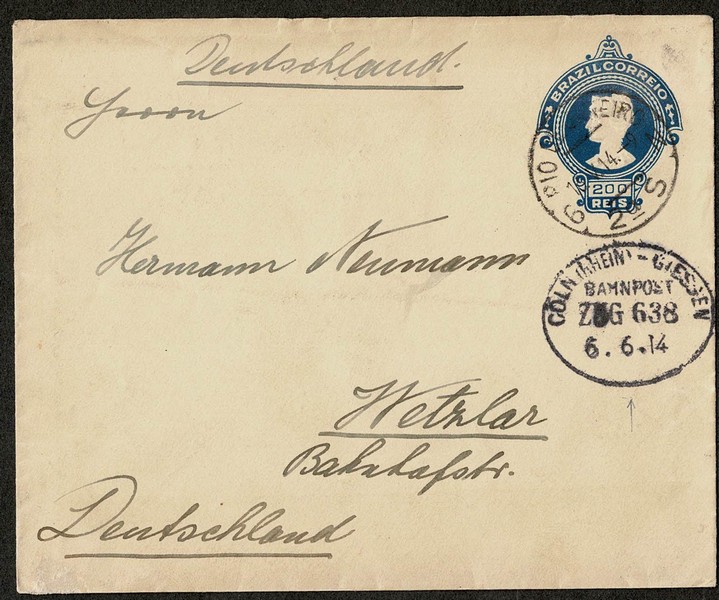 Deutschland.
Herrn
Hermann Neumann
Wetzlar
Bahnhofstr.
Deutschland
BRAZIL CORREIO
200
REIS
RIO
NEIRO
14
2ª S
CÖLN (RHEIN) - GIESSEN
BAHNPOST
ZUG 638
6.6.14